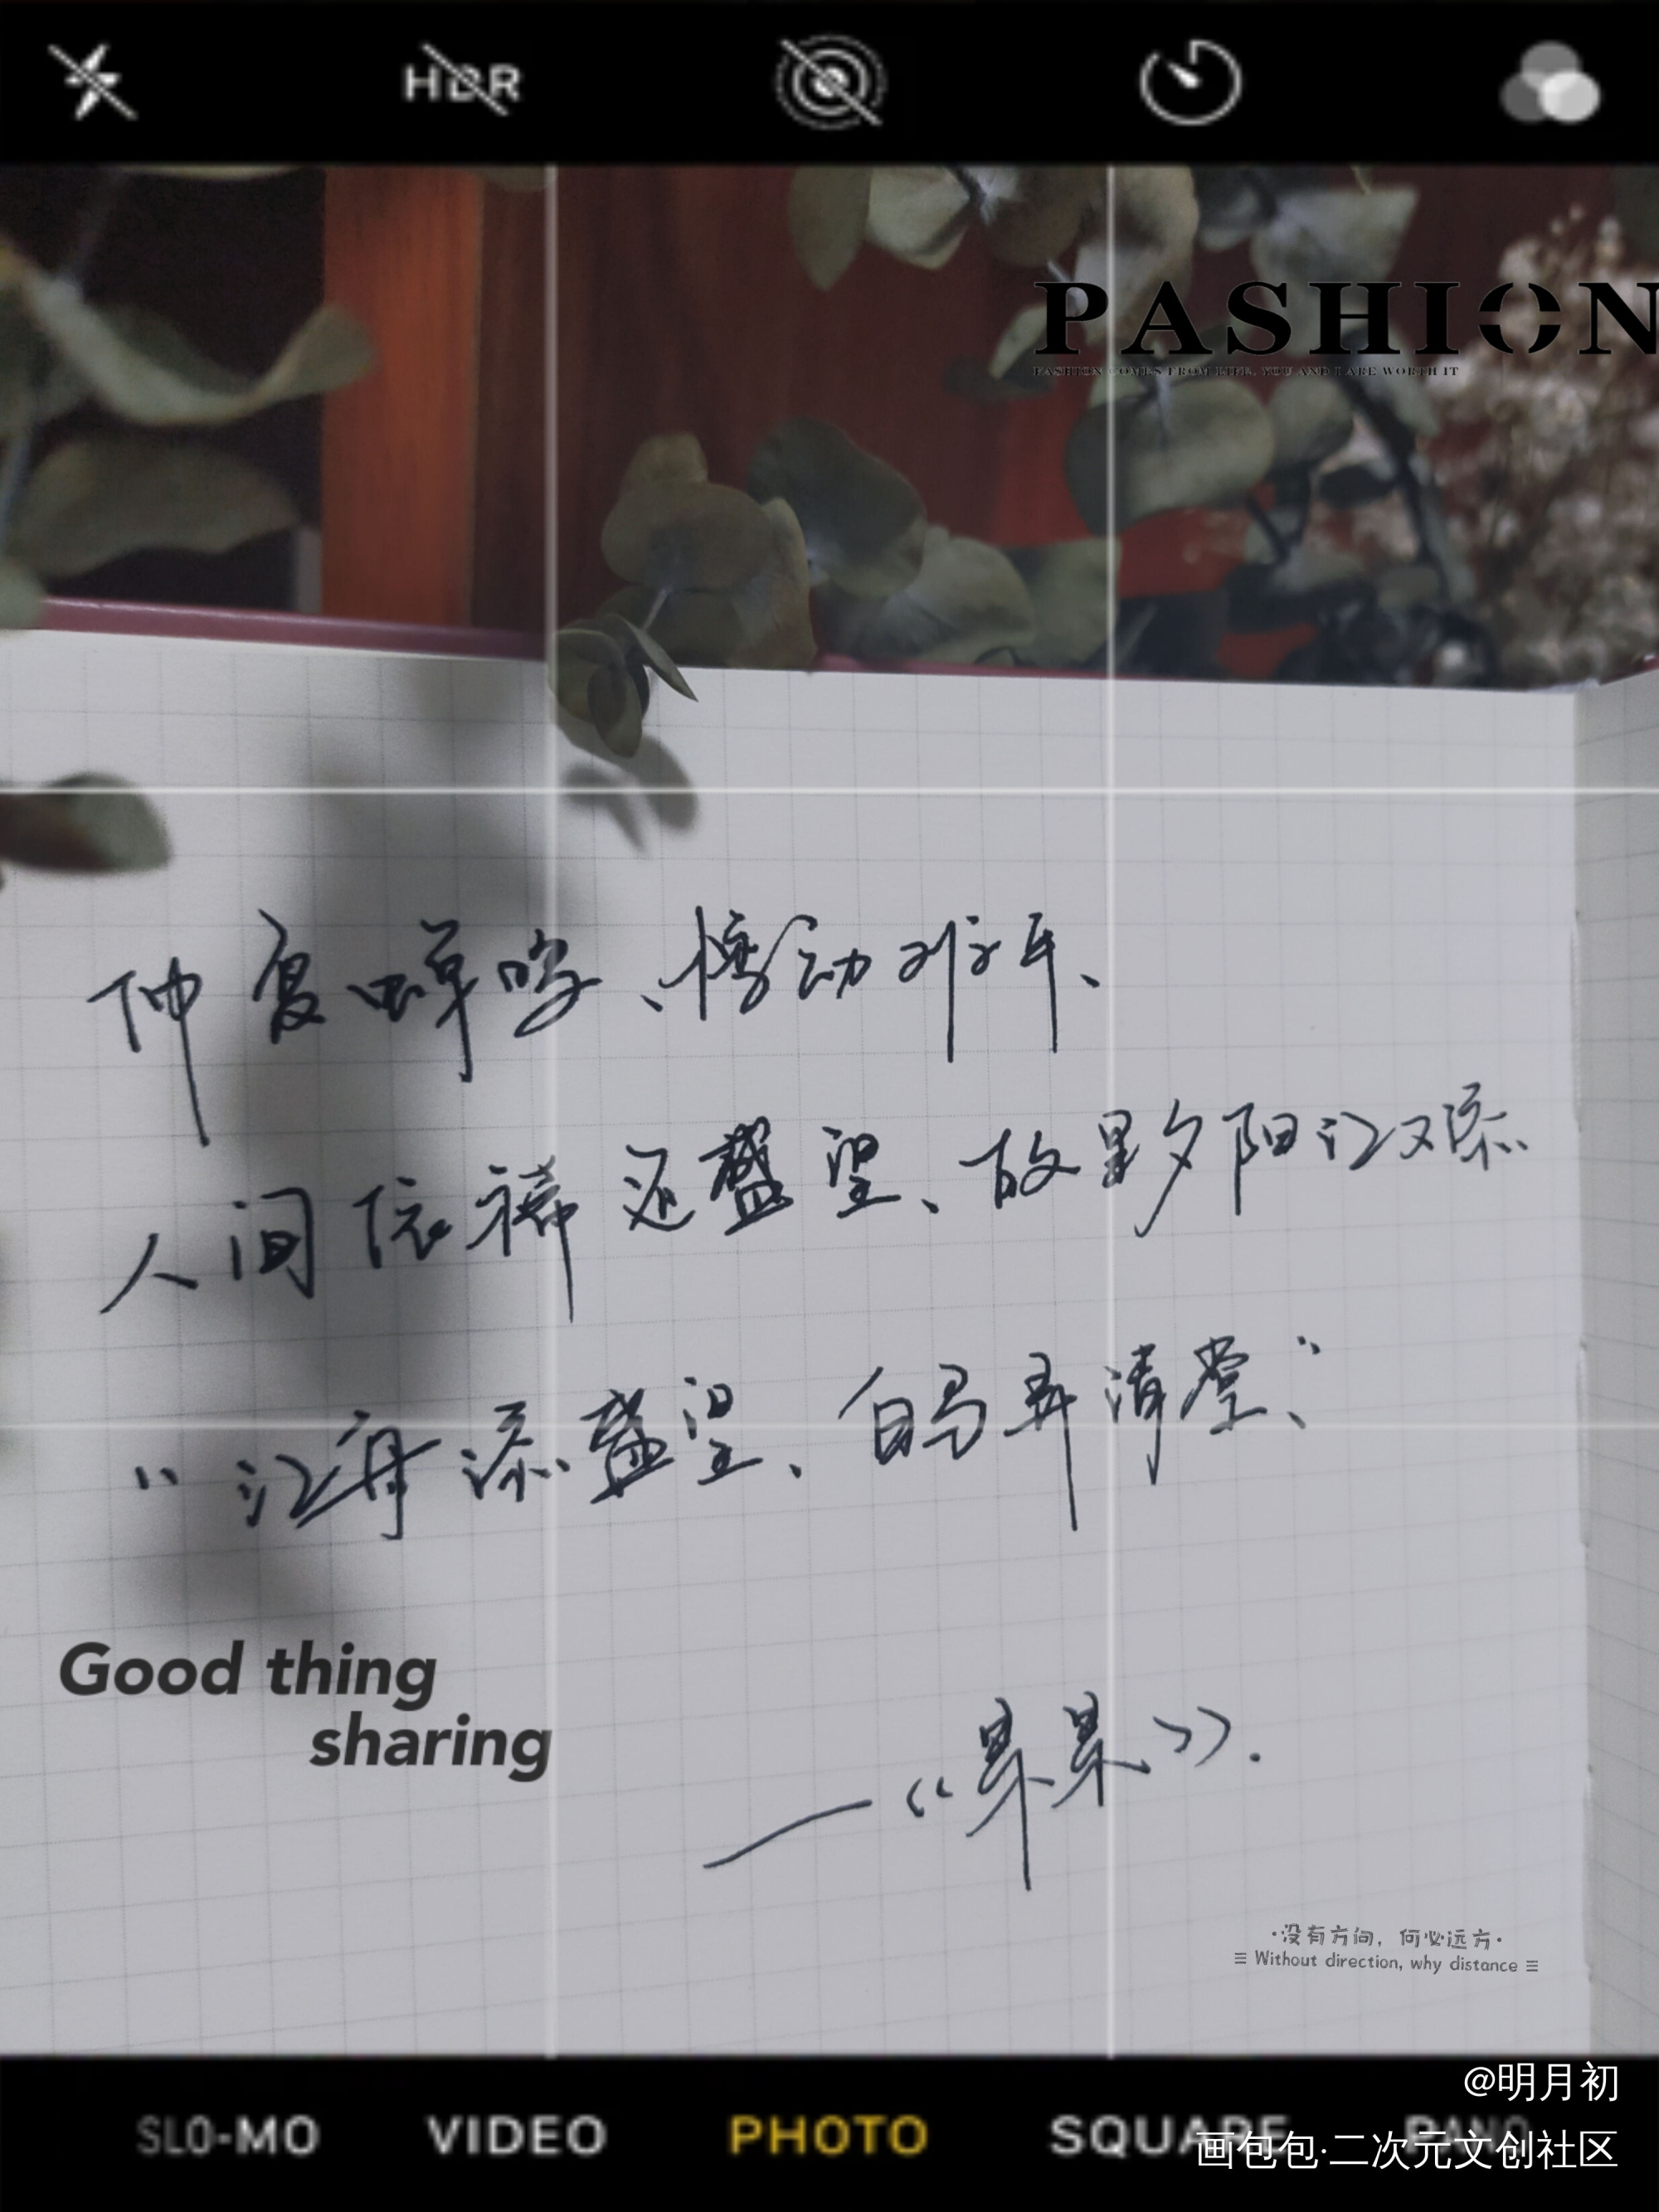 HDR
PASHION
FASHION COMES FROM LIFE, YOU AND I ARE WORTH IT
仲夏蝉鸣、悸动那年、
人间依稀还盛望、故里夕阳江又添
“江再添盛望、白马弄清堂、”
Good thing
sharing
——《杲杲》.
·没有方向，何必远方·
≡ Without direction, why distance ≡
@明月初
SLO-MO VIDEO PHOTO SQUARE PANO
画包包·二次元文创社区